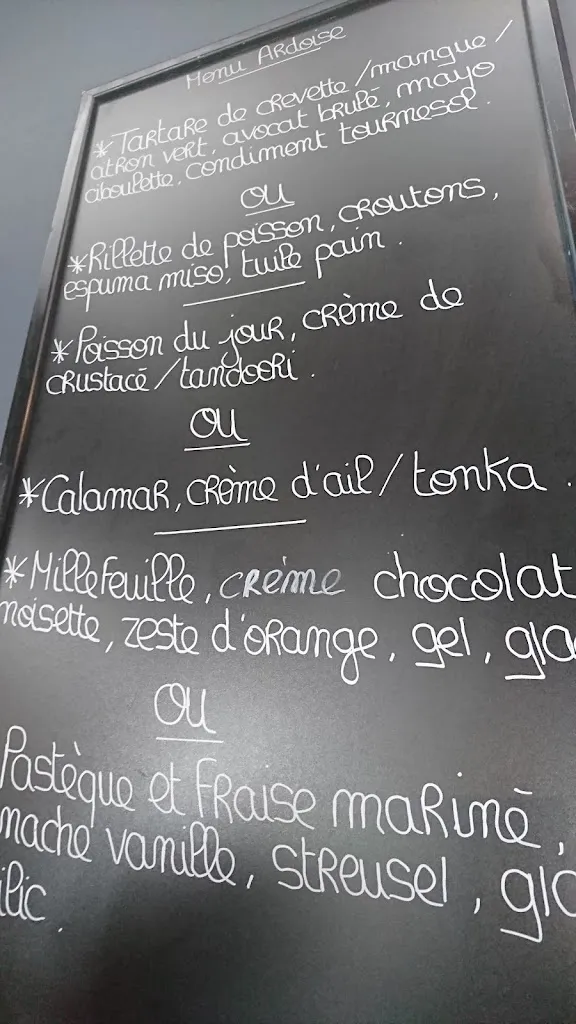 Menu Ardoise
*Tartare de crevette/mangue/
citron vert, avocat brulé, mayo
ciboulette, condiment tournesol.
OU
*Rillette de poisson, croutons,
espuma miso, tuile pain.
*Poisson du jour, crème de
crustacé/tandoori.
OU
*Calamar, crème d'ail/tonka.
*Millefeuille, crème chocolat
noisette, zeste d'orange, gel, gla
OU
Pastèque et Fraise marine,
mache vanille, streusel, gla
ilic.